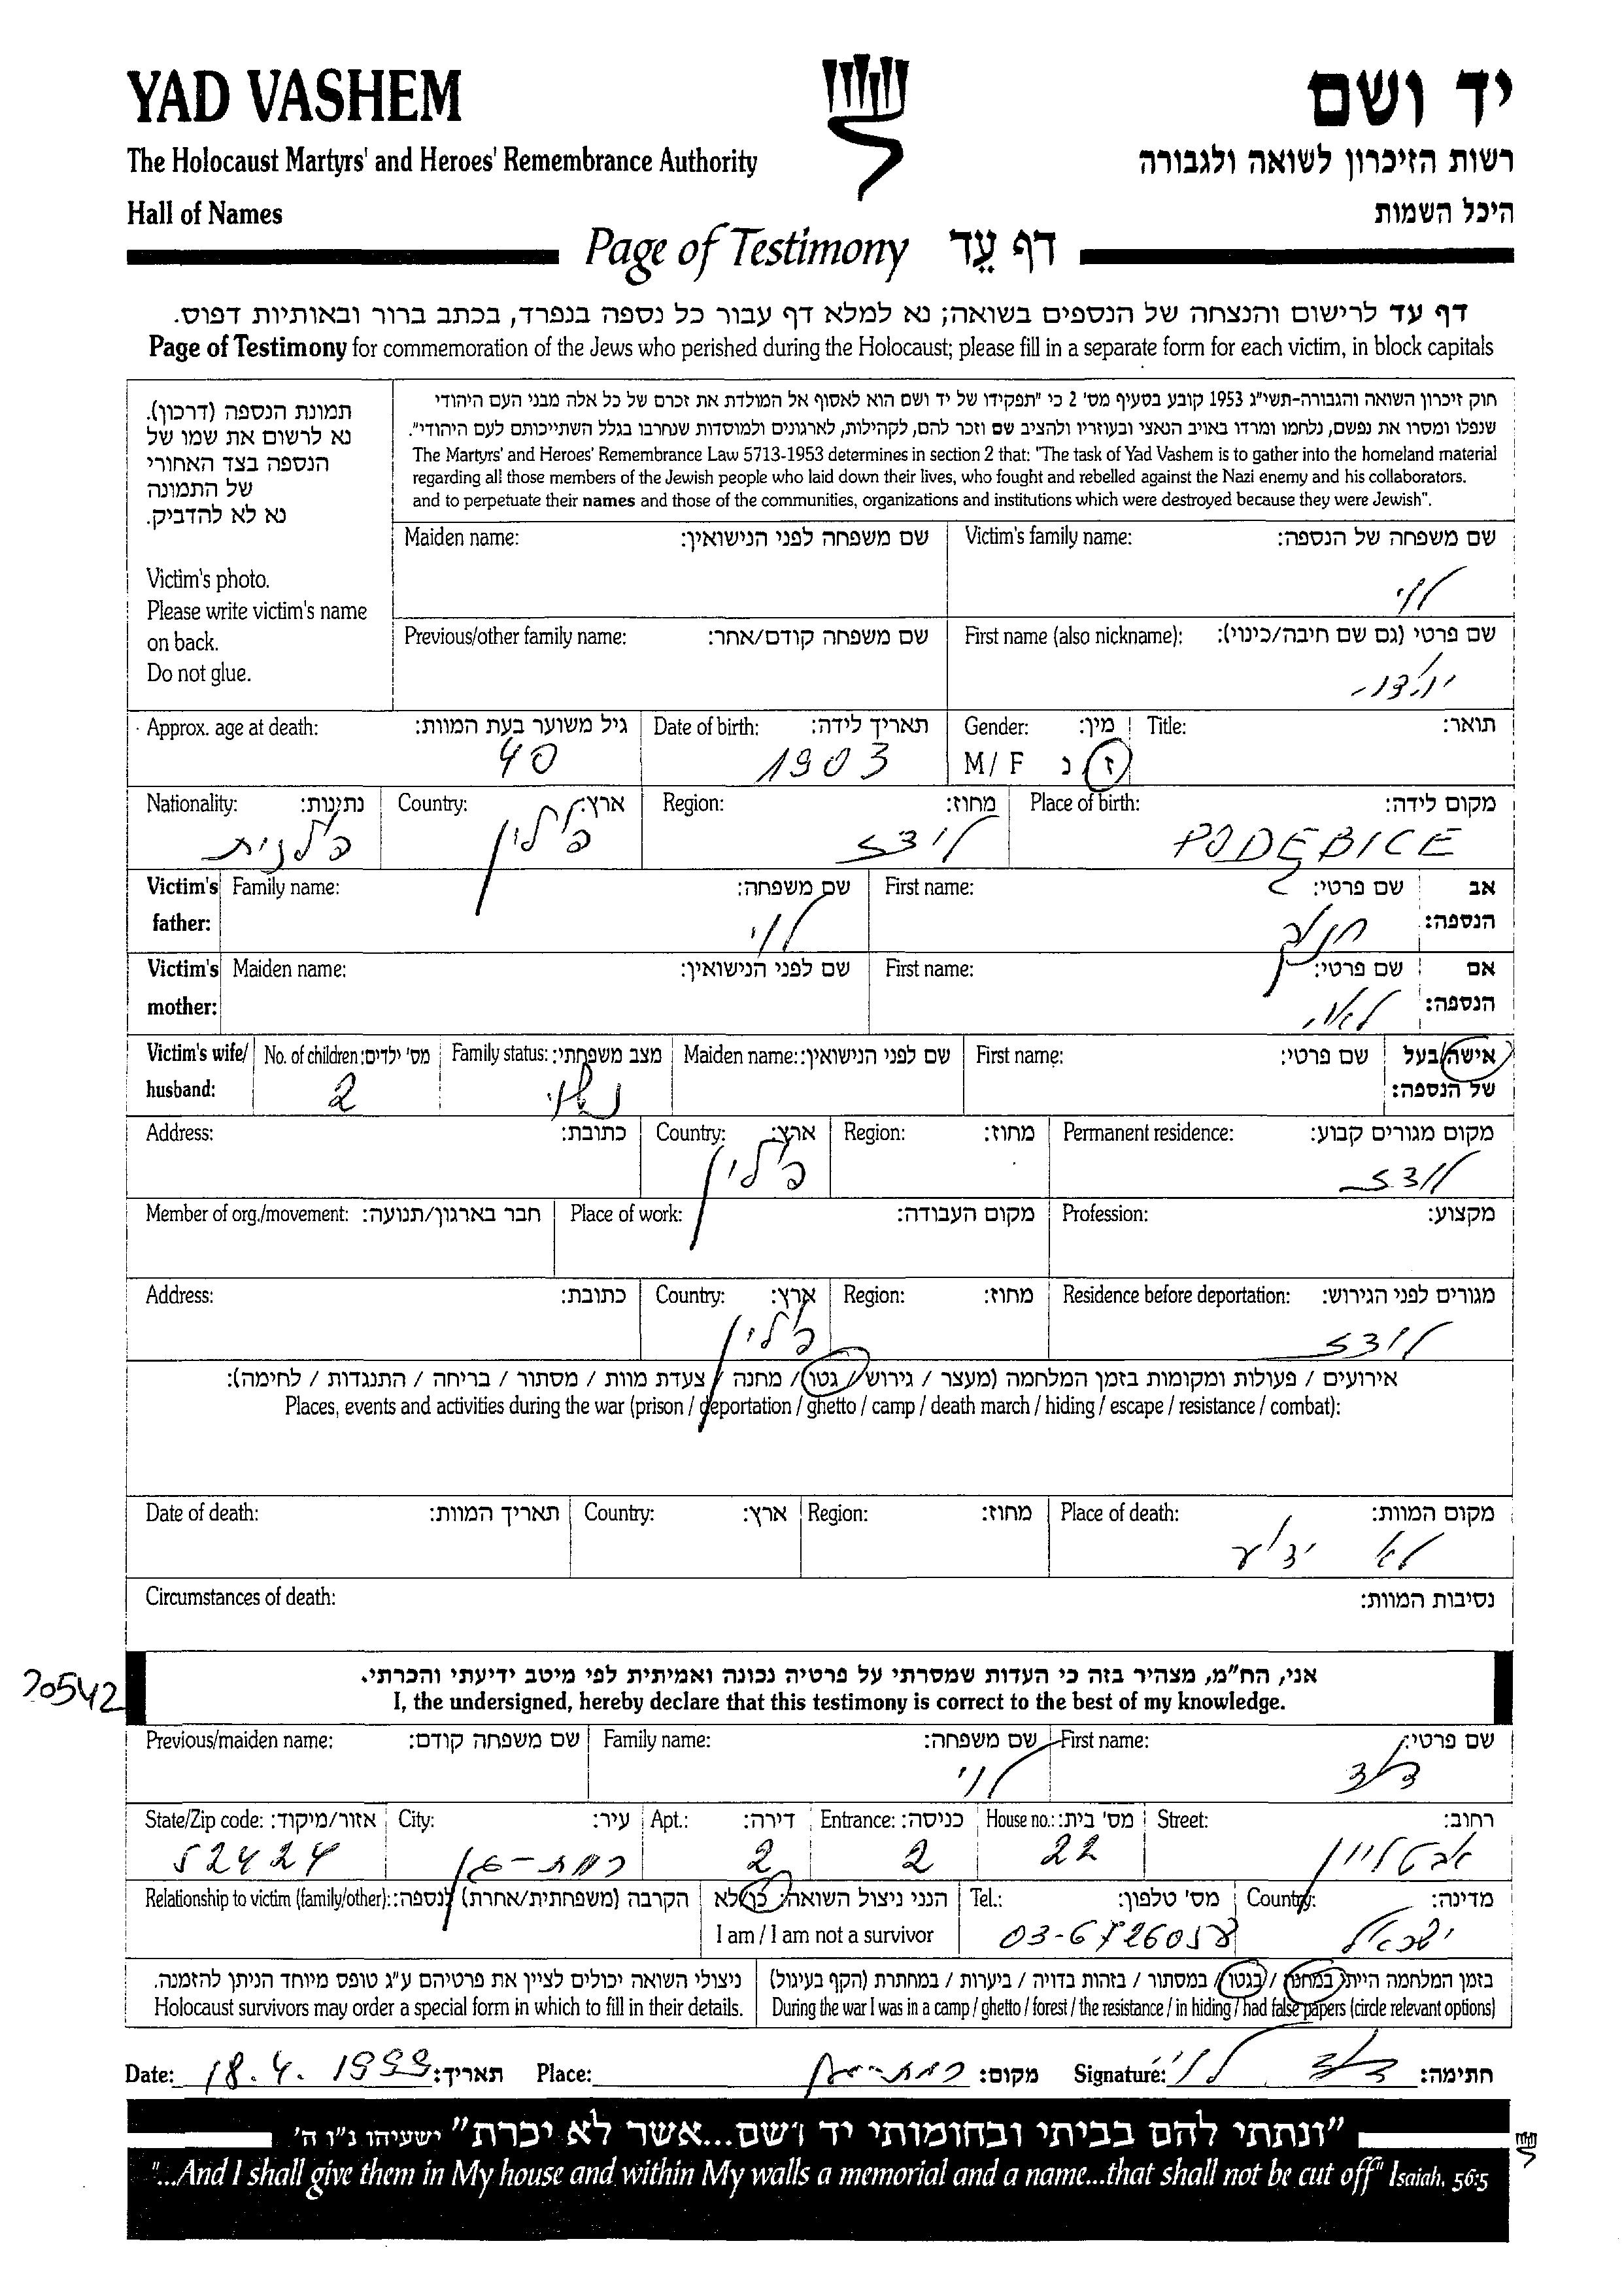 YAD VASHEM
יד ושם
The Holocaust Martyrs' and Heroes' Remembrance Authority
רשות הזיכרון לשואה ולגבורה
Hall of Names
היכל השמות
Page of Testimony דף עֵד
דף עד לרישום והנצחה של הנספים בשואה; נא למלא דף עבור כל נספה בנפרד, בכתב ברור ובאותיות דפוס.
Page of Testimony for commemoration of the Jews who perished during the Holocaust; please fill in a separate form for each victim, in block capitals
תמונת הנספה (דרכון).
נא לרשום את שמו של
הנספה בצד האחורי
של התמונה
נא לא להדביק.
Victim's photo.
Please write victim's name
on back.
Do not glue.
חוק זיכרון השואה והגבורה-תשי"ג 1953 קובע בסעיף מס' 2 כי "תפקידו של יד ושם הוא לאסוף אל המולדת את זכרם של כל אלה מבני העם היהודי
שנפלו ומסרו את נפשם, נלחמו ומרדו באויב הנאצי ובעוזריו ולהציב שם וזכר להם, לקהילות, לארגונים ולמוסדות שנחרבו בגלל השתייכותם לעם היהודי".
The Martyrs' and Heroes' Remembrance Law 5713-1953 determines in section 2 that: "The task of Yad Vashem is to gather into the homeland material
regarding all those members of the Jewish people who laid down their lives, who fought and rebelled against the Nazi enemy and his collaborators.
and to perpetuate their names and those of the communities, organizations and institutions which were destroyed because they were Jewish".
Maiden name: שם משפחה לפני הנישואין:
Victim's family name: שם משפחה של הנספה:
לוי
Previous/other family name: שם משפחה קודם/אחר:
First name (also nickname): שם פרטי (גם שם חיבה/כינוי):
Approx. age at death: גיל משוער בעת המוות:
40
Date of birth: תאריך לידה:
1903
Gender: מין:
M/ F ז נ
Title: תואר:
Nationality: נתינות:
פולנית
Country: ארץ:
פולין
Region: מחוז:
לודז
Place of birth: מקום לידה:
PODĘBICE
Victim's father:
Family name: שם משפחה:
לוי
First name: שם פרטי:
חנוך
אב הנספה:
Victim's mother:
Maiden name: שם לפני הנישואין:
First name: שם פרטי:
לאה
אם הנספה:
Victim's wife/ husband:
No. of children: מס' ילדים:
2
Family status: מצב משפחתי:
נשוי
Maiden name: שם לפני הנישואין:
First name: שם פרטי:
אישה/בעל של הנספה:
Address: כתובת:
Country: ארץ:
פולין
Region: מחוז:
Permanent residence: מקום מגורים קבוע:
לודז
Member of org./movement: חבר בארגון/תנועה:
Place of work: מקום העבודה:
Profession: מקצוע:
Address: כתובת:
Country: ארץ:
פולין
Region: מחוז:
Residence before deportation: מגורים לפני הגירוש:
לודז
אירועים / פעולות ומקומות בזמן המלחמה (מעצר / גירוש / גטו / מחנה / צעדת מוות / מסתור / בריחה / התנגדות / לחימה):
Places, events and activities during the war (prison / deportation / ghetto / camp / death march / hiding / escape / resistance / combat):
Date of death: תאריך המוות:
Country: ארץ:
Region: מחוז:
Place of death: מקום המוות:
לא ידוע
Circumstances of death: נסיבות המוות:
20542
אני, הח"מ, מצהיר בזה כי העדות שמסרתי על פרטיה נכונה ואמיתית לפי מיטב ידיעתי והכרתי.
I, the undersigned, hereby declare that this testimony is correct to the best of my knowledge.
Previous/maiden name: שם משפחה קודם:
Family name: שם משפחה:
לוי
First name: שם פרטי:
דוד
State/Zip code: אזור/מיקוד:
52424
City: עיר:
רמת-גן
Apt.: דירה:
2
Entrance: כניסה:
2
House no.: מס' בית:
22
Street: רחוב:
אבטליון
Relationship to victim (family/other): הקרבה (משפחתית/אחרת) לנספה:
הנני ניצול השואה: כן/לא
I am / I am not a survivor
Tel.: מס' טלפון:
Country: מדינה:
ישראל
ניצולי השואה יכולים לציין את פרטיהם ע"ג טופס מיוחד הניתן להזמנה.
Holocaust survivors may order a special form in which to fill in their details.
בזמן המלחמה הייתי במחנה / בגטו / במסתור / בזהות בדויה / ביערות / במחתרת (הקף בעיגול)
During the war I was in a camp / ghetto / forest / the resistance / in hiding / had false papers (circle relevant options)
Date: 18.4.1999 תאריך:
Place: רמת-גן מקום:
Signature: דוד לוי חתימה:
"ונתתי להם בביתי ובחומותי יד ושם...אשר לא יכרת" ישעיהו נ"ו ה'
"...And I shall give them in My house and within My walls a memorial and a name...that shall not be cut off" Isaiah, 56:5